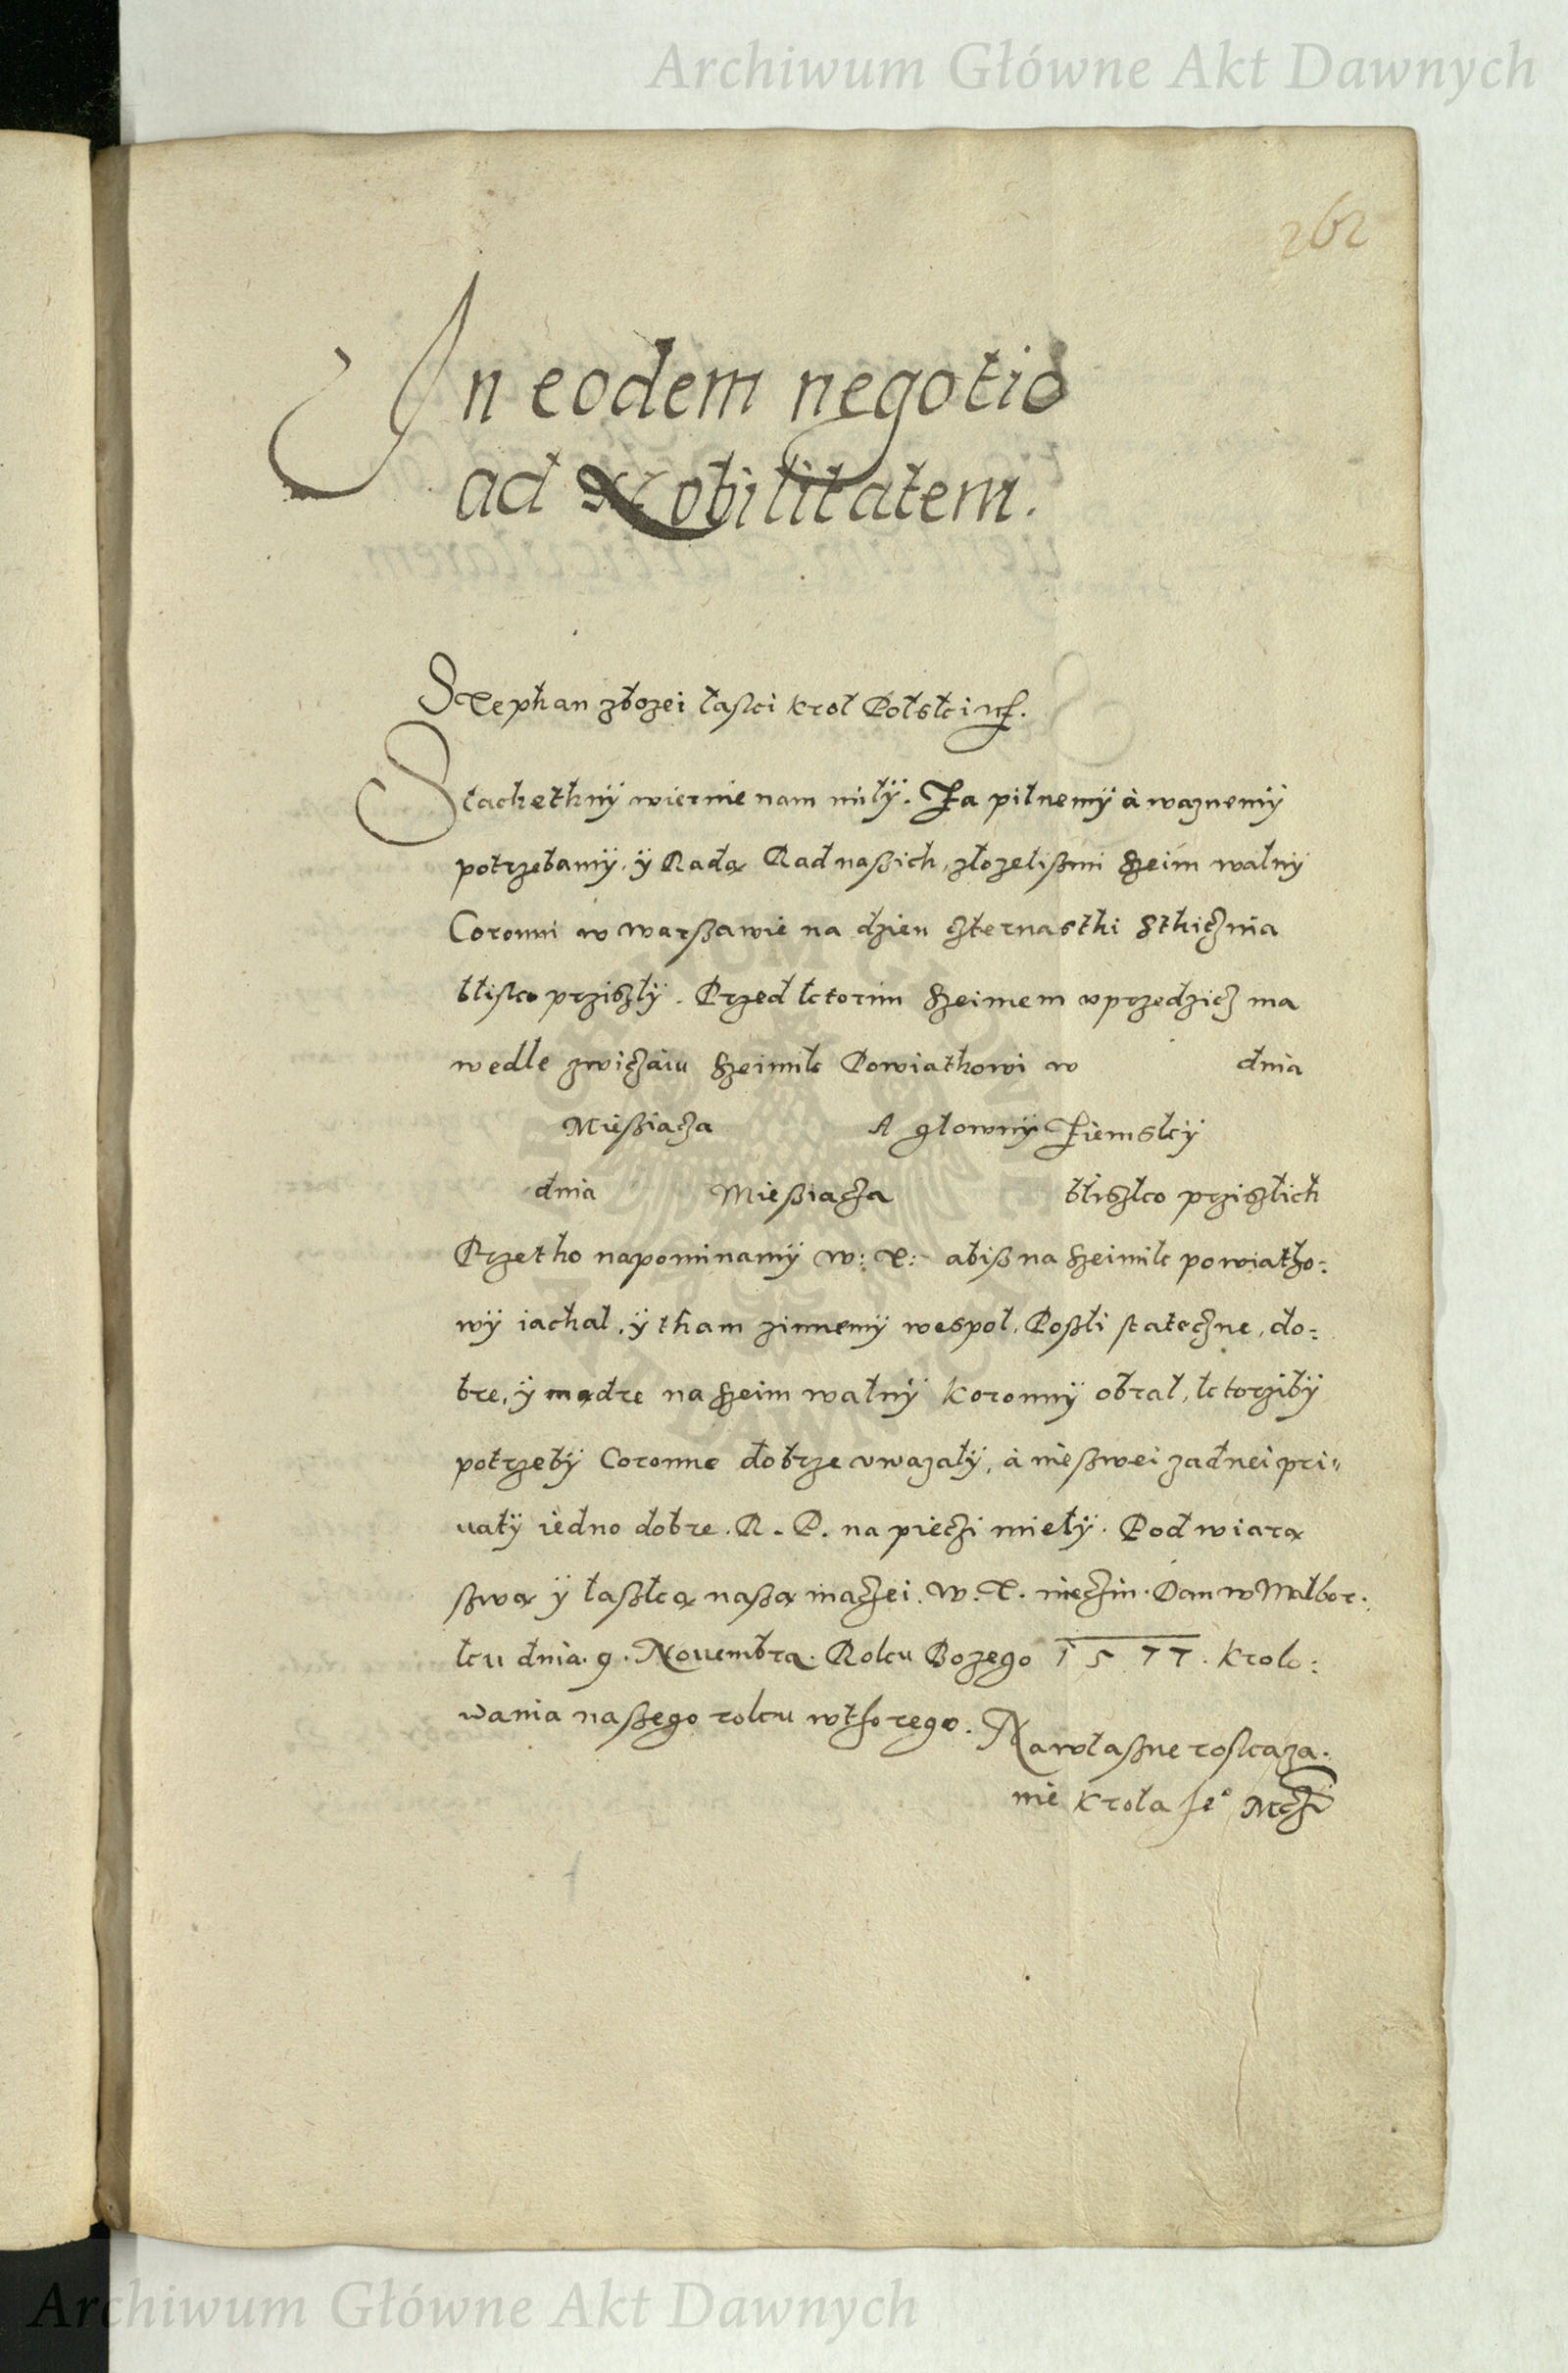 Archiwum Główne Akt Dawnych
262
In eodem negotio
ad Nobilitatem.
Stephan zbozei łaski Krol Polski
Slachethnÿ wiernie nam miłÿ. Za pilnemÿ à waznemÿ
potrzebamÿ, ÿ Radą Rad naßich, złozelißmi Szeim walnÿ
Coronni w warßawie na dzien czternasthi Sthicznia
blisko prziszłÿ. Przed ktorim Szeimem uprzedzicz ma
wedle zwiczaiu Szeimik Powiathowi w dnia
Mießiacza A głownÿ Ziemskÿ
dnia Mießiacza bliszko prziszlich
Przetho napominamÿ W: T: abiß na Szeimik powiatho:
wÿ iachal, ÿ tham zinnemÿ wespol, Poßli stateczne, do:
bre, ÿ mądre na Szeim walnÿ Koronnÿ obral, ktorzibÿ
potrzebÿ Coronne dobrze uwazalÿ, à nie ßwei zadnei pri„
uatÿ iedno dobre. R. P. na pieczi mielÿ. Pod wiarą
ßwą ÿ łaßką naßą inaczei. W. T. nieczin. Dan w Malbor:
ku dnia. 9. Novembra. Roku Bozego 1577. Krolo:
wania naßego roku wthorego. Na własne roskaza:
nie Krola Je° Mczi
ARCHIWUM GŁÓWNE
AKT DAWNYCH
Archiwum Główne Akt Dawnych